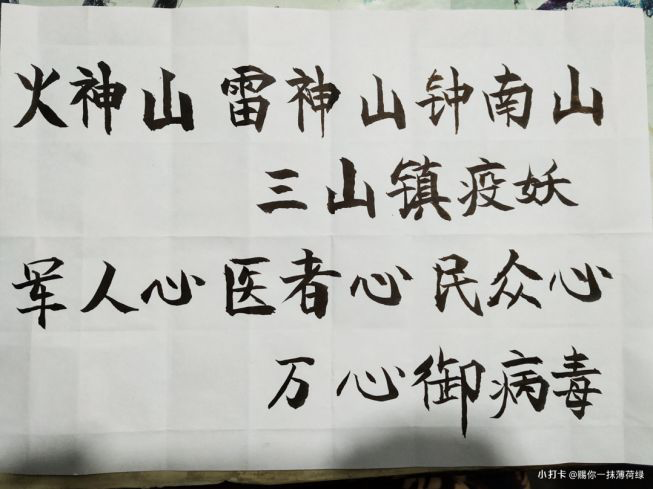 火神山 雷神山 钟南山
三山镇疫妖
军人心 医者心 民众心
万心御病毒
小打卡 @赐你一抹薄荷绿